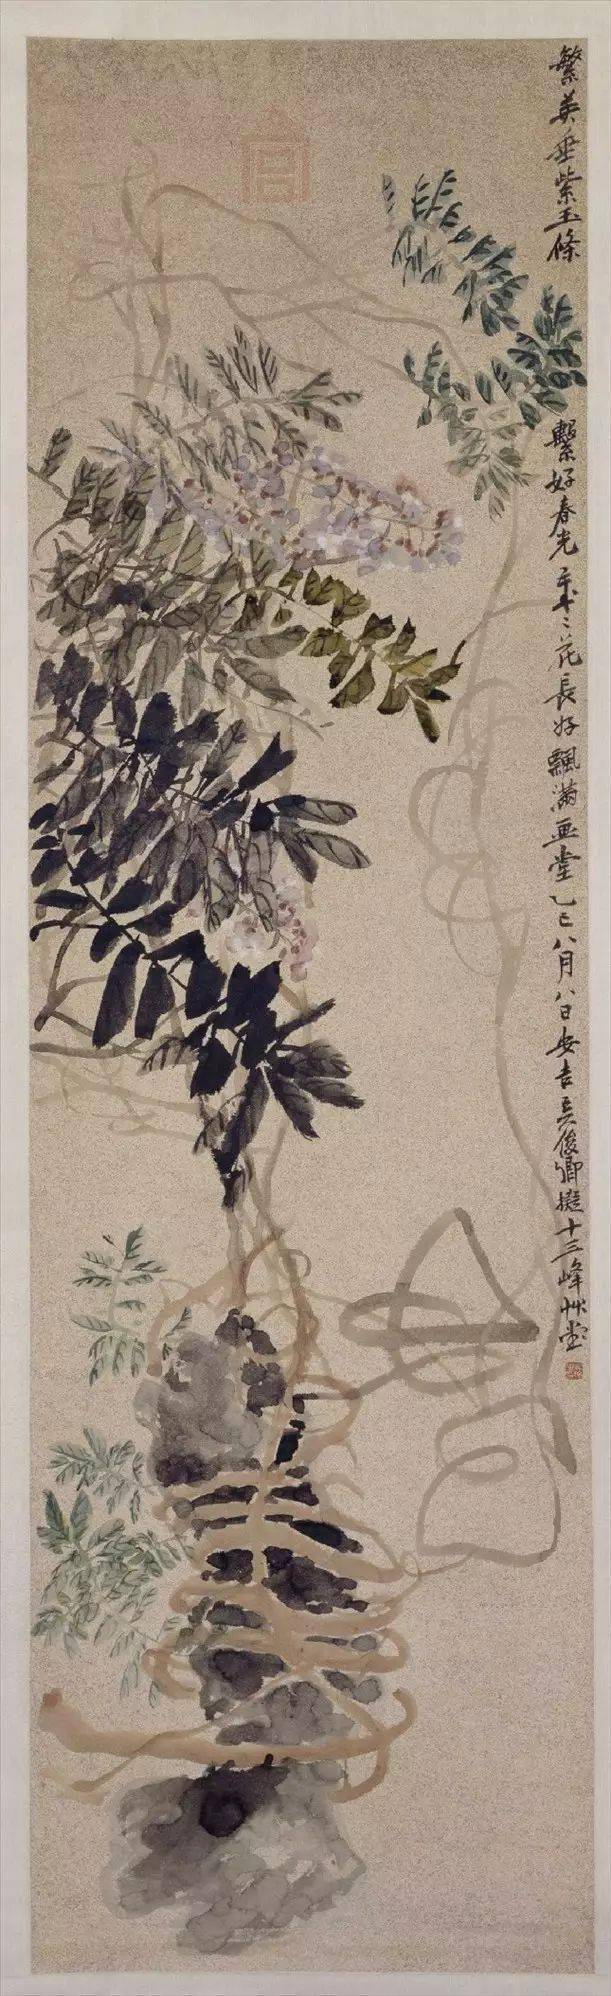 繁英垂紫玉條
繫好春光年年花長好飄滿畫堂乙巳八月八日安吉吳俊卿擬十三峰艸堂